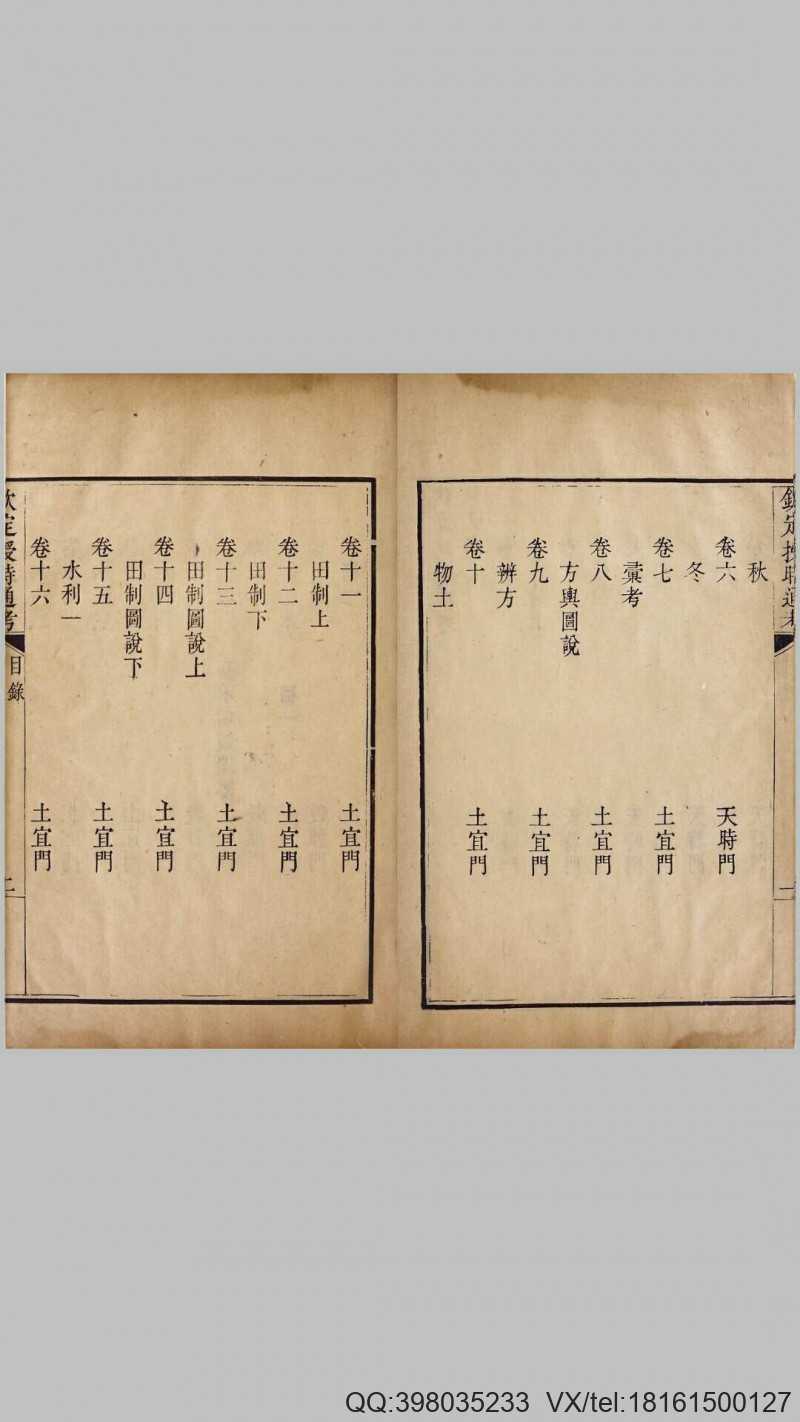 欽定授時通考
秋
卷六 天時門
冬
卷七 土宜門
彚考
卷八 土宜門
方輿圖說
卷九 土宜門
辨方
卷十 土宜門
物土
卷十一 土宜門
田制上
卷十二 土宜門
田制下
卷十三 土宜門
田制圖說上
卷十四 土宜門
田制圖說下
卷十五 土宜門
水利一
卷十六 土宜門
欽定授時通考 目錄
QQ:398035233 VX/tel:18161500127